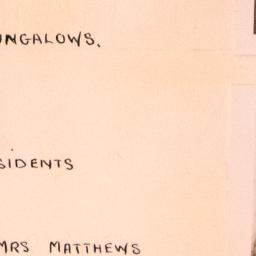 UNGALOWS.
SIDENTS
MRS MATTHEWS